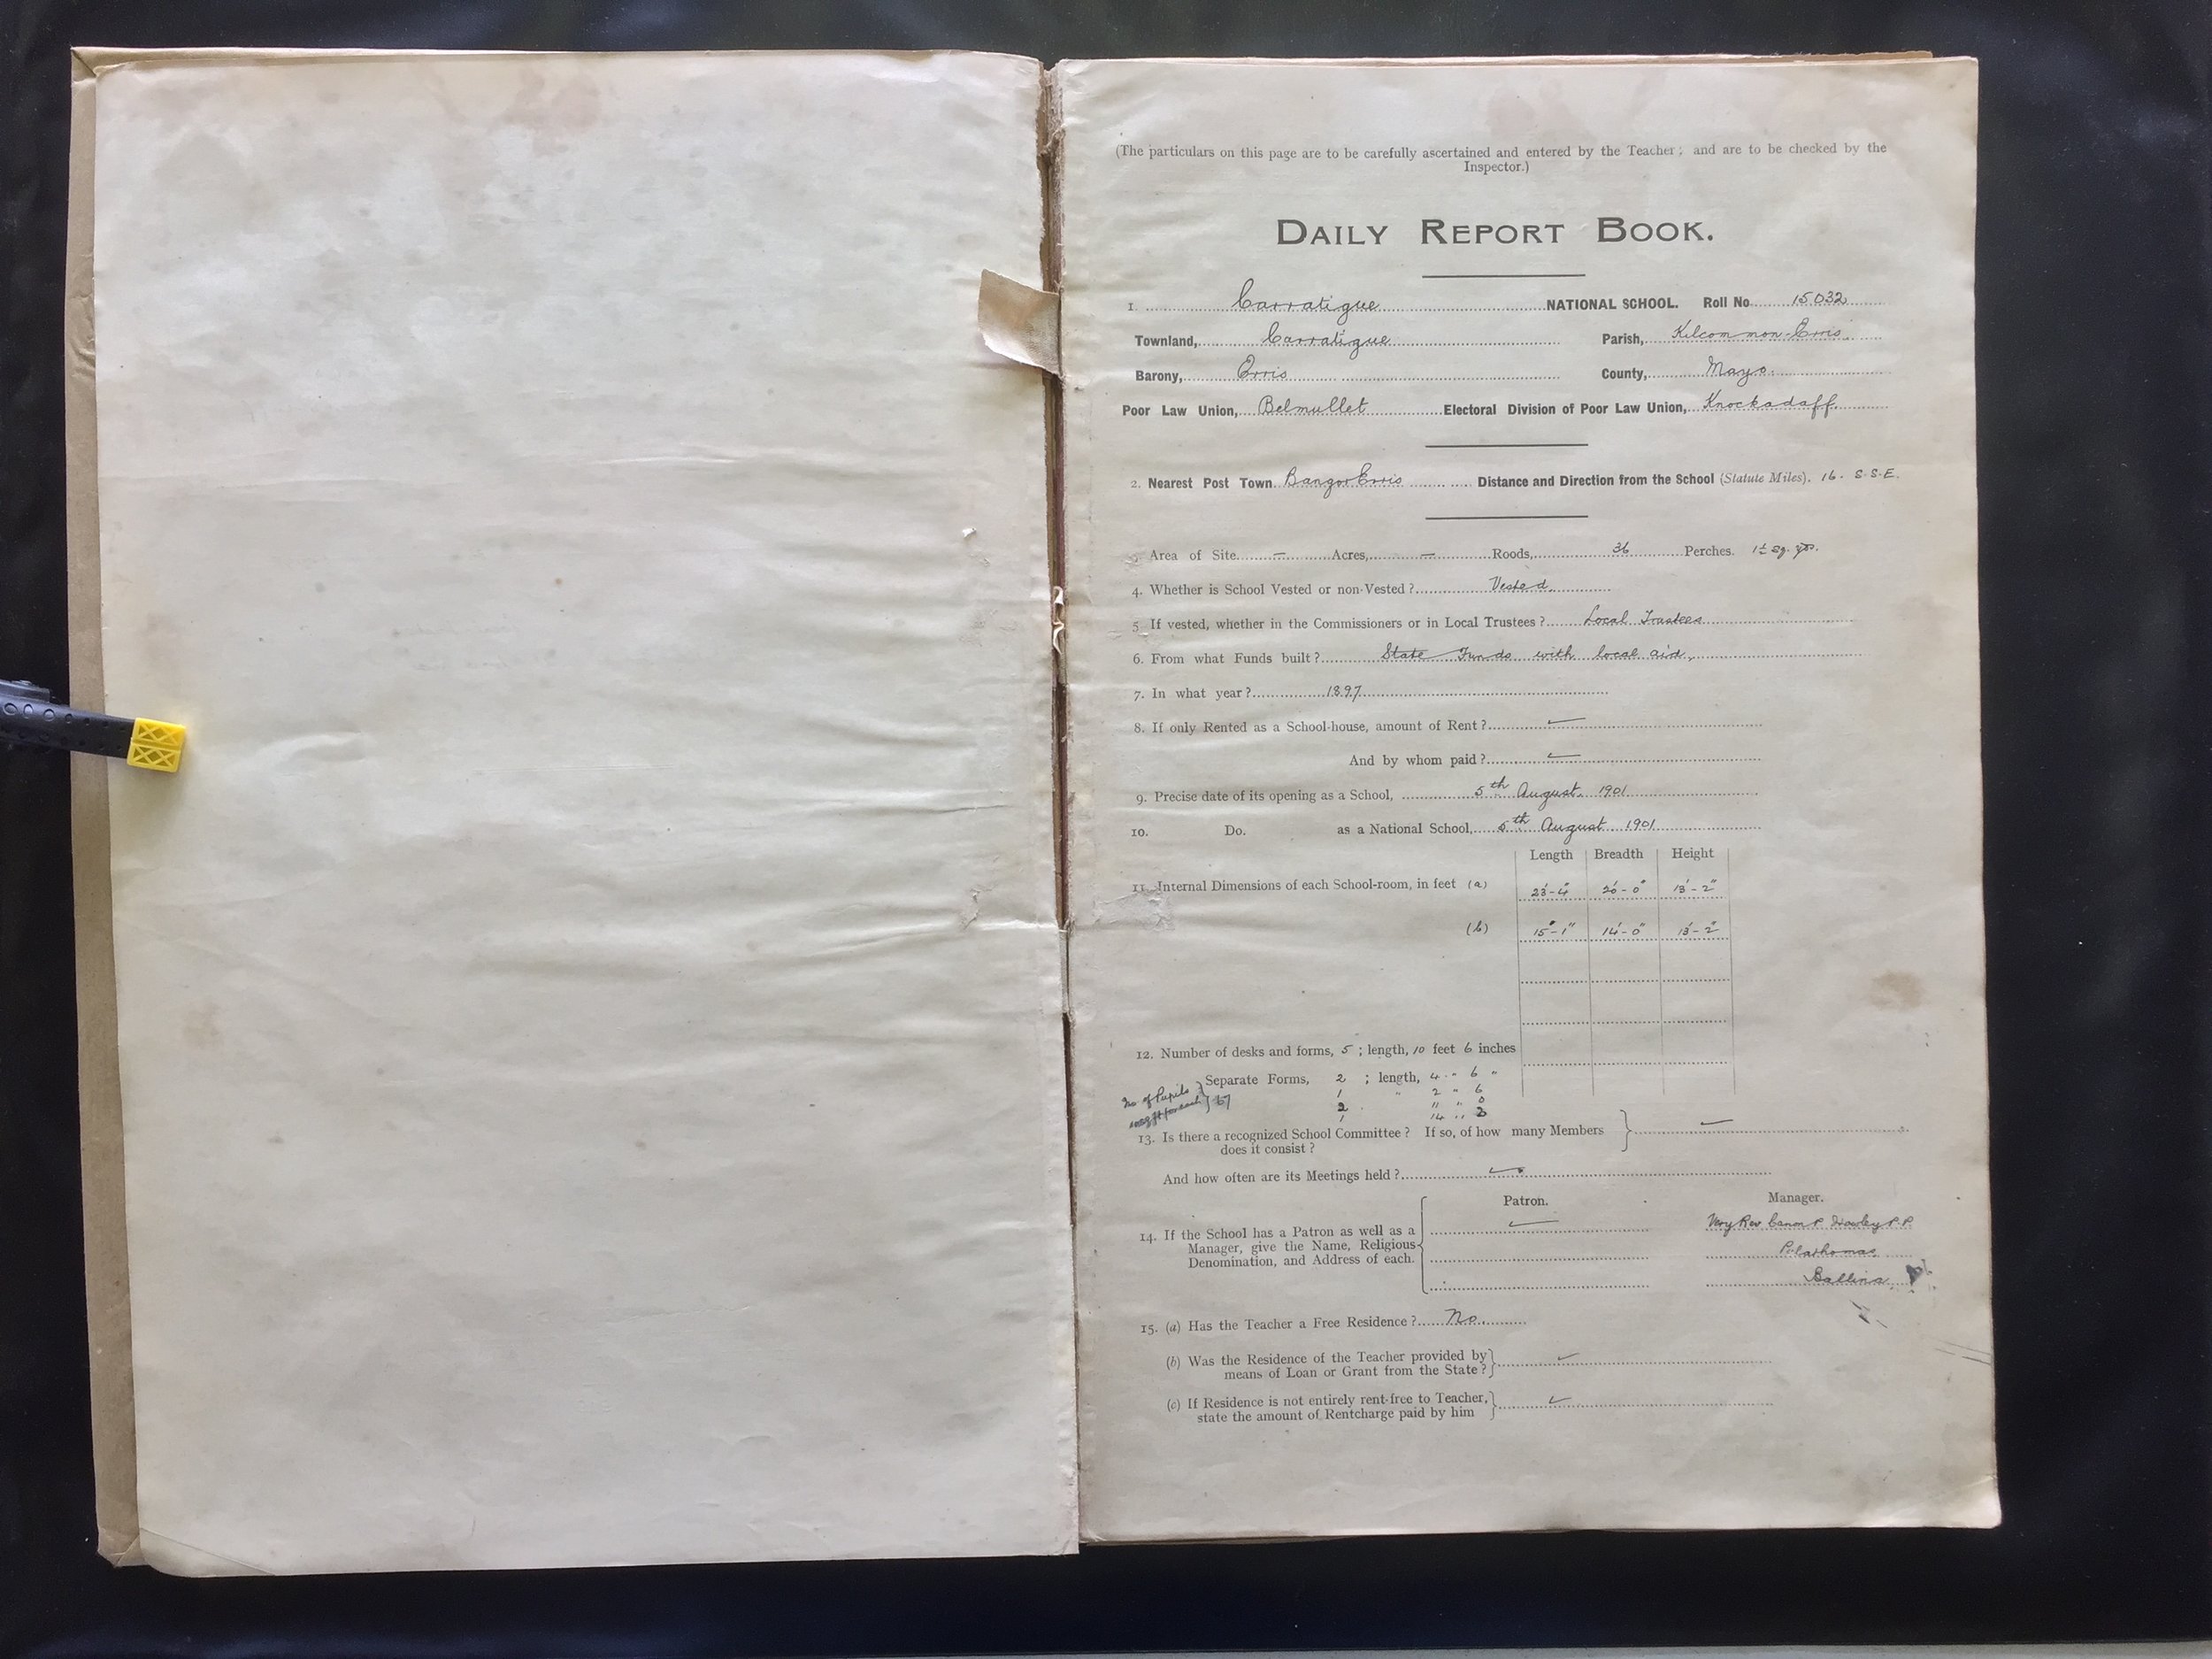 (The particulars on this page are to be carefully ascertained and entered by the Teacher; and are to be checked by the
Inspector.)
DAILY REPORT BOOK.
1. Carratigue NATIONAL SCHOOL. Roll No 15032
Townland, Carratigue Parish, Kilcommon-Erris
Barony, Erris County, Mayo.
Poor Law Union, Belmullet Electoral Division of Poor Law Union, Knockadaff.
2. Nearest Post Town Bangor Erris Distance and Direction from the School (Statute Miles). 16. S.S.E.
3. Area of Site — Acres, — Roods, 36 Perches. 1½ sq. yds.
4. Whether is School Vested or non-Vested? Vested.
5. If vested, whether in the Commissioners or in Local Trustees? Local Trustees
6. From what Funds built? State Funds with local aid.
7. In what year? 1897
8. If only Rented as a School-house, amount of Rent? ✓
And by whom paid? ✓
9. Precise date of its opening as a School, 5th August. 1901
10. Do. as a National School, 5th August 1901
Length Breadth Height
11. Internal Dimensions of each School-room, in feet (a) 23'-4" 20'-0" 13'-2"
(b) 15'-1" 14'-0" 13'-2"
12. Number of desks and forms, 5; length, 10 feet 6 inches
Separate Forms, 2; length, 4 " 6 "
1 " 2 " 6
2 11 " 0
1 14 " 3
No of Pupils
for each } 67
13. Is there a recognized School Committee? If so, of how many Members } ✓
does it consist?
And how often are its Meetings held? ✓
Patron. Manager.
14. If the School has a Patron as well as a ✓ Very Rev Canon P. Howley P.P.
Manager, give the Name, Religious Polathomas
Denomination, and Address of each. Ballina
15. (a) Has the Teacher a Free Residence? No.
(b) Was the Residence of the Teacher provided by } ✓
means of Loan or Grant from the State?
(c) If Residence is not entirely rent-free to Teacher, } ✓
state the amount of Rentcharge paid by him